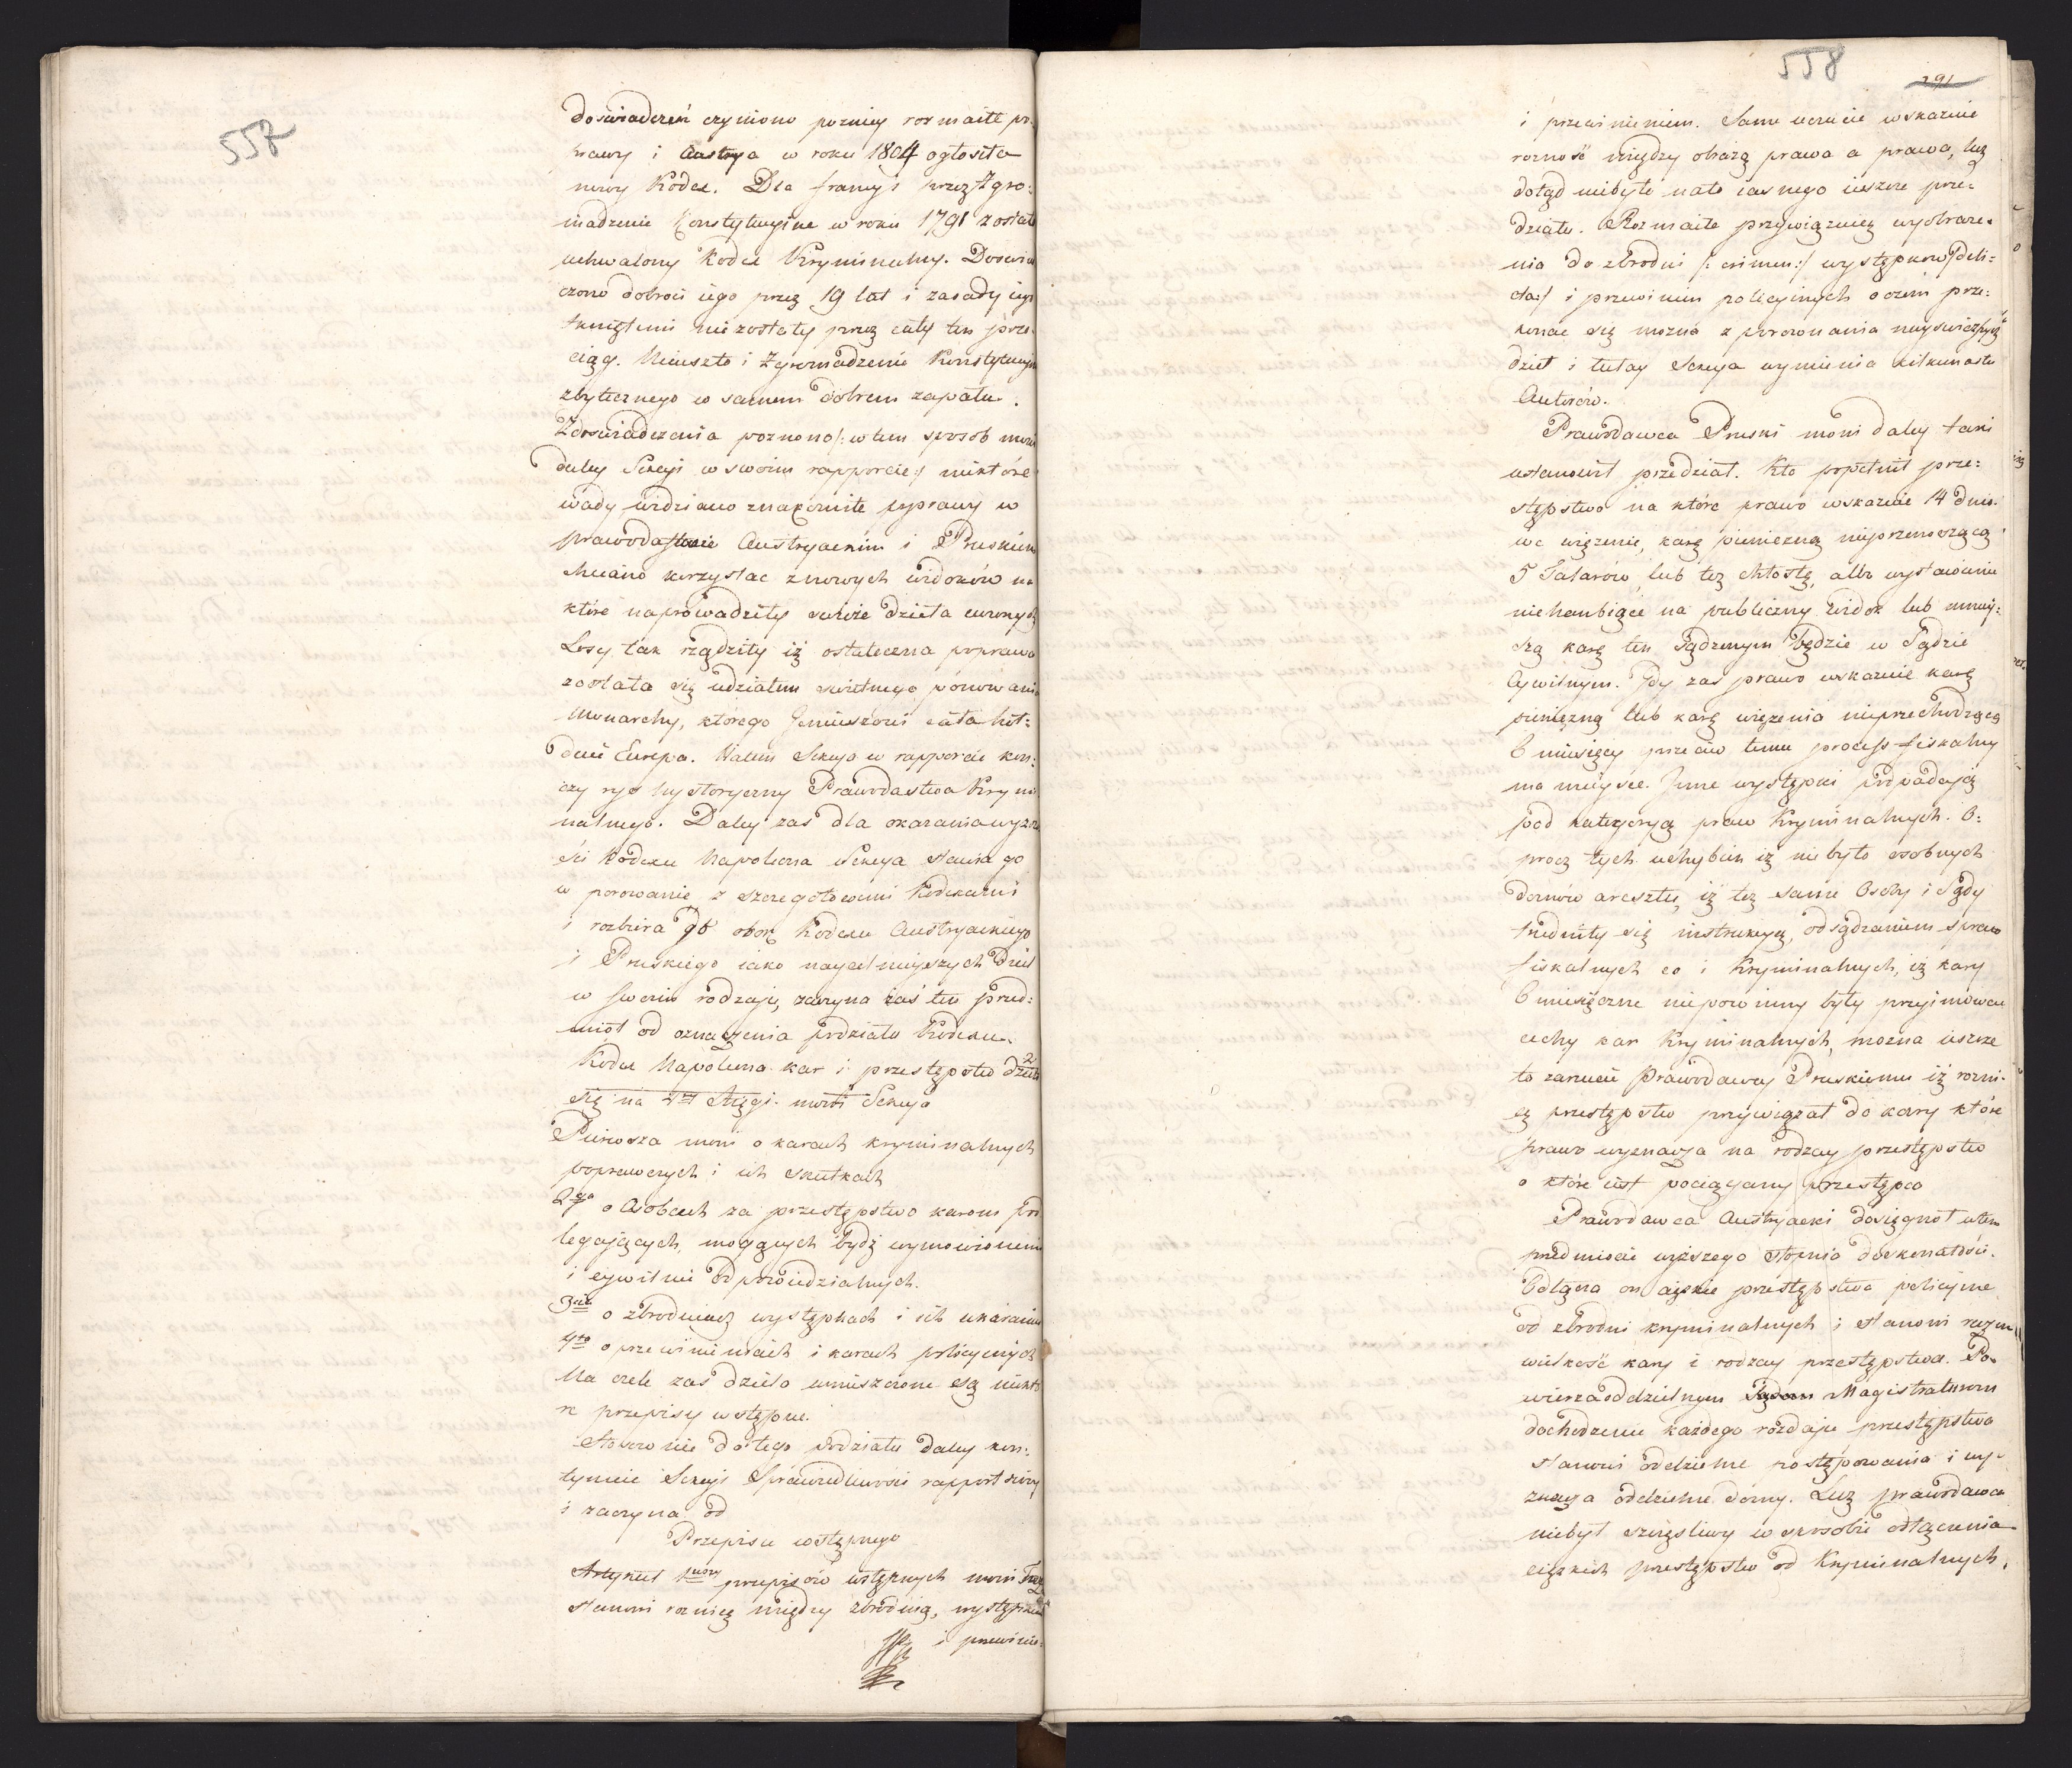 557
doswiadczeń czyniono pozniey rozmaite po-
prawy i Austrya w roku 1804 ogłosiła
nowy Kodex. Dla francyi przez Zgro:
madzenie Konstytucyjne w roku 1791 został
uchwalony Kodex Kryminalny. Doswiad
czono dobroci iego przez 19 lat i zasady iego
tknięteni nie zostały przez cały ten prze-
ciąg. Nieuszło i Zgromadzenie Konstytucyjn
zbytecznego w samem dobrem zapału.
Z doswiadczenia poznono /: w tem sposob mowi
daley Sekcyi w swoim rapporcie :/ niektóre
wady widziano znakomite poprawy w
prawodastwie Austryackim i Pruskiem
chciano korzystac z nowych widoków na
które naprowadziły swieże dzieła uczonych
Losy tak rządziły iż ostateczna poprawa
została się udziałem swietnego panowania
Monarchy, którego Geniuszowi cała hoł:
duie Europa. Natem Sekcya w rapporcie koń:
czy rys hystoryczny Prawodastwa Krymi
nalnego. Daley zaś dla okazania wyższo
ści Kodexu Napoleona Sekcya stawia go
w porownanie z szczegołowemi Kodexami
i rozbiera go obok Kodexu Austryackiego
i Pruskiego iako naycelnieyszych dzieł
w swoim rodzaju, zaczyna zaś ten przed:
miot od oznaczenia podziału Kodexu.
Kodex Napoleona kar i przestępstw dzieli
się na 4ry Xięgi. mowi Sekcya
Pierwsza mowi o karach kryminalnych
poprawczych i ich skutkach
2ga o Osobach za przestępstwo karom pod
legających, mogących bydź wymowionemi
i cywilnie odpowiedzialnych.
3cia o zbrodniach występkach i ich ukaraniu
4ta o przewinieniach i karach policyinych
Na czele zaś dzieła umieszczone są niektó
re przepisy wstępne.
Stosownie do tego podziału daley kon:
tynuie Sekcyi Sprawiedliwości rapport swóy
i zaczyna od
Przepisu wstępnego
Artykuł 1wszy przepisów wstępnych mowi
stanowi roznicę między zbrodnią, występkiem
i przewinie:
558
291
i przewinieniem. Samo uczucie wskazuie
rozność między obrazą prawa a prawa, lecz
dotąd niebyło nato iasnego ieszcze prze-
działu. Rozmaite przywięzuią wyobraże-
nia do zbrodni /: crimen :/ występkow / deli:
cta :/ i przewinień policyinych o czem prze:
konac się można z porownania nayswieższych
dzieł i tutay Sekcya wymienia kilkunastu
Autorów.
Prawodawca Pruski mowi daley taki
ustanowił przedział. Kto popełnił prze:
stępstwo na które prawo wskazuie 14 dnio:
we więzienie, karę pieniezną nieprzenoszącą
5 Talarów, lub też chłostę, albo wystawienie
niehanbiące na publiczny widok lub mniey:
szą karę ten sądzonym będzie w Sądzie
Cywilnym. Gdy zaś prawo wskazuie karę
pieniężną lub karę więzienia nieprzechodzącą
6 miesięcy przeciw temu process fiskalny
ma mieysce. Inne występki podpadają
pod kategoryą praw Kryminalnych. O:
procz tych uchybień iż nie było osobnych
domów aresztu, iż też same Osoby i Sądy
trudniły się instrukcyą, odsądzaniem spraw
fiskalnych co i Kryminalnych, iż kary
6 miesięczne niepowinny były przyimować
cechy kar Kryminalnych, można ieszcze
to zarzucić Prawodawcy Pruskiemu iż rozni-
cę przestępstw przywiązał do kary które
prawo wyznacza na rodzay przestępstw
o które iest pociągany przestępca
Prawodawca Austryacki dosięgnoł w tem
przedmiocie wyższego stopnia doskonałości.
Odłącza on ciężkie przestępstwa policyine
od zbrodni kryminalnych i stanowi razem
wielkość kary i rodzay przestępstwa. Po-
wierza oddzielnym Magistraturom
dochodzenie każdego rodzaju przestępstwa
stanowi oddzielne postępowania i wy-
znacza oddzielne domy. Lecz prawodawca
niebył szczęśliwy w sposobie odłączenia
ciężkich przestępstw od Kryminalnych,